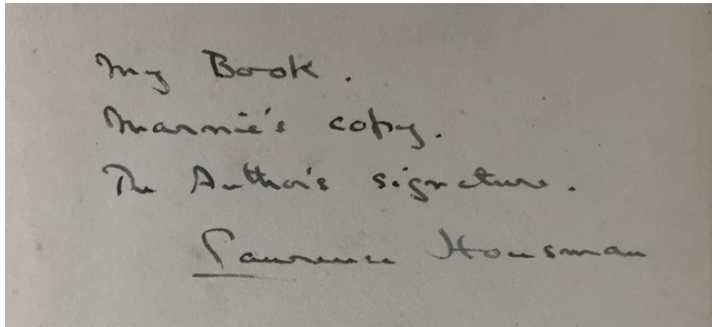 My Book.
Marnie's copy.
The Author's signature.
Laurence Housman